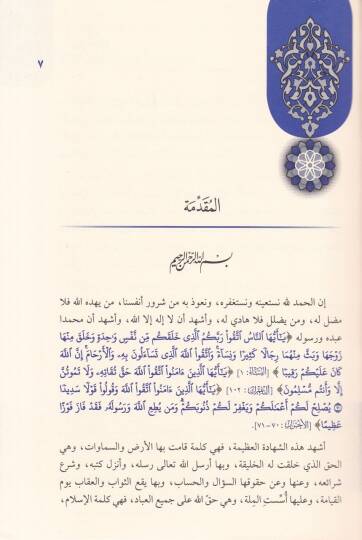 ٧
المُقَدِّمَة
بسم الله الرحمن الرحيم
إن الحمد لله نستعينه ونستغفره، ونعوذ به من شرور أنفسنا، من يهده الله فلا
مضل له، ومن يضلل فلا هادي له، وأشهد أن لا إله إلا الله، وأشهد أن محمدا
عبده ورسوله ﴿يَٰٓأَيُّهَا ٱلنَّاسُ ٱتَّقُوا۟ رَبَّكُمُ ٱلَّذِى خَلَقَكُم مِّن نَّفْسٍ وَٰحِدَةٍ وَخَلَقَ مِنْهَا
زَوْجَهَا وَبَثَّ مِنْهُمَا رِجَالًا كَثِيرًا وَنِسَآءً وَٱتَّقُوا۟ ٱللَّهَ ٱلَّذِى تَسَآءَلُونَ بِهِۦ وَٱلْأَرْحَامَ إِنَّ ٱللَّهَ
كَانَ عَلَيْكُمْ رَقِيبًا﴾ [النساء: ١] ﴿يَٰٓأَيُّهَا ٱلَّذِينَ ءَامَنُوا۟ ٱتَّقُوا۟ ٱللَّهَ حَقَّ تُقَاتِهِۦ وَلَا تَمُوتُنَّ
إِلَّا وَأَنتُم مُّسْلِمُونَ﴾ [آل عمران: ١٠٢] ﴿يَٰٓأَيُّهَا ٱلَّذِينَ ءَامَنُوا۟ ٱتَّقُوا۟ ٱللَّهَ وَقُولُوا۟ قَوْلًا سَدِيدًا
٧٠ يُصْلِحْ لَكُمْ أَعْمَٰلَكُمْ وَيَغْفِرْ لَكُمْ ذُنُوبَكُمْ وَمَن يُطِعِ ٱللَّهَ وَرَسُولَهُۥ فَقَدْ فَازَ فَوْزًا
عَظِيمًا﴾ [الأحزاب: ٧٠-٧١].
أشهد هذه الشهادة العظيمة، فهي كلمة قامت بها الأرض والسماوات، وهي
الحق الذي خلقت له الخليقة، وبها أرسل الله تعالى رسله، وأنزل كتبه، وشرع
شرائعه، وعنها وعن حقوقها السؤال والحساب، وبها يقع الثواب والعقاب يوم
القيامة، وعليها أُسِّست المِلة، وهي حقُّ الله على جميع العباد، فهي كلمة الإسلام،